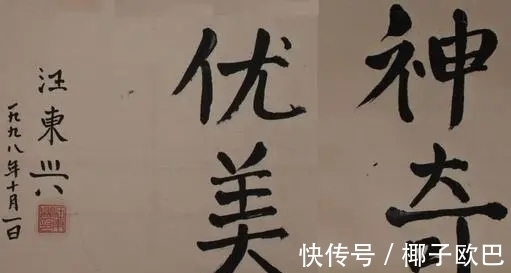 神奇
优美
汪東兴
一九九八年十月一日
快传号 / 椰子欧巴